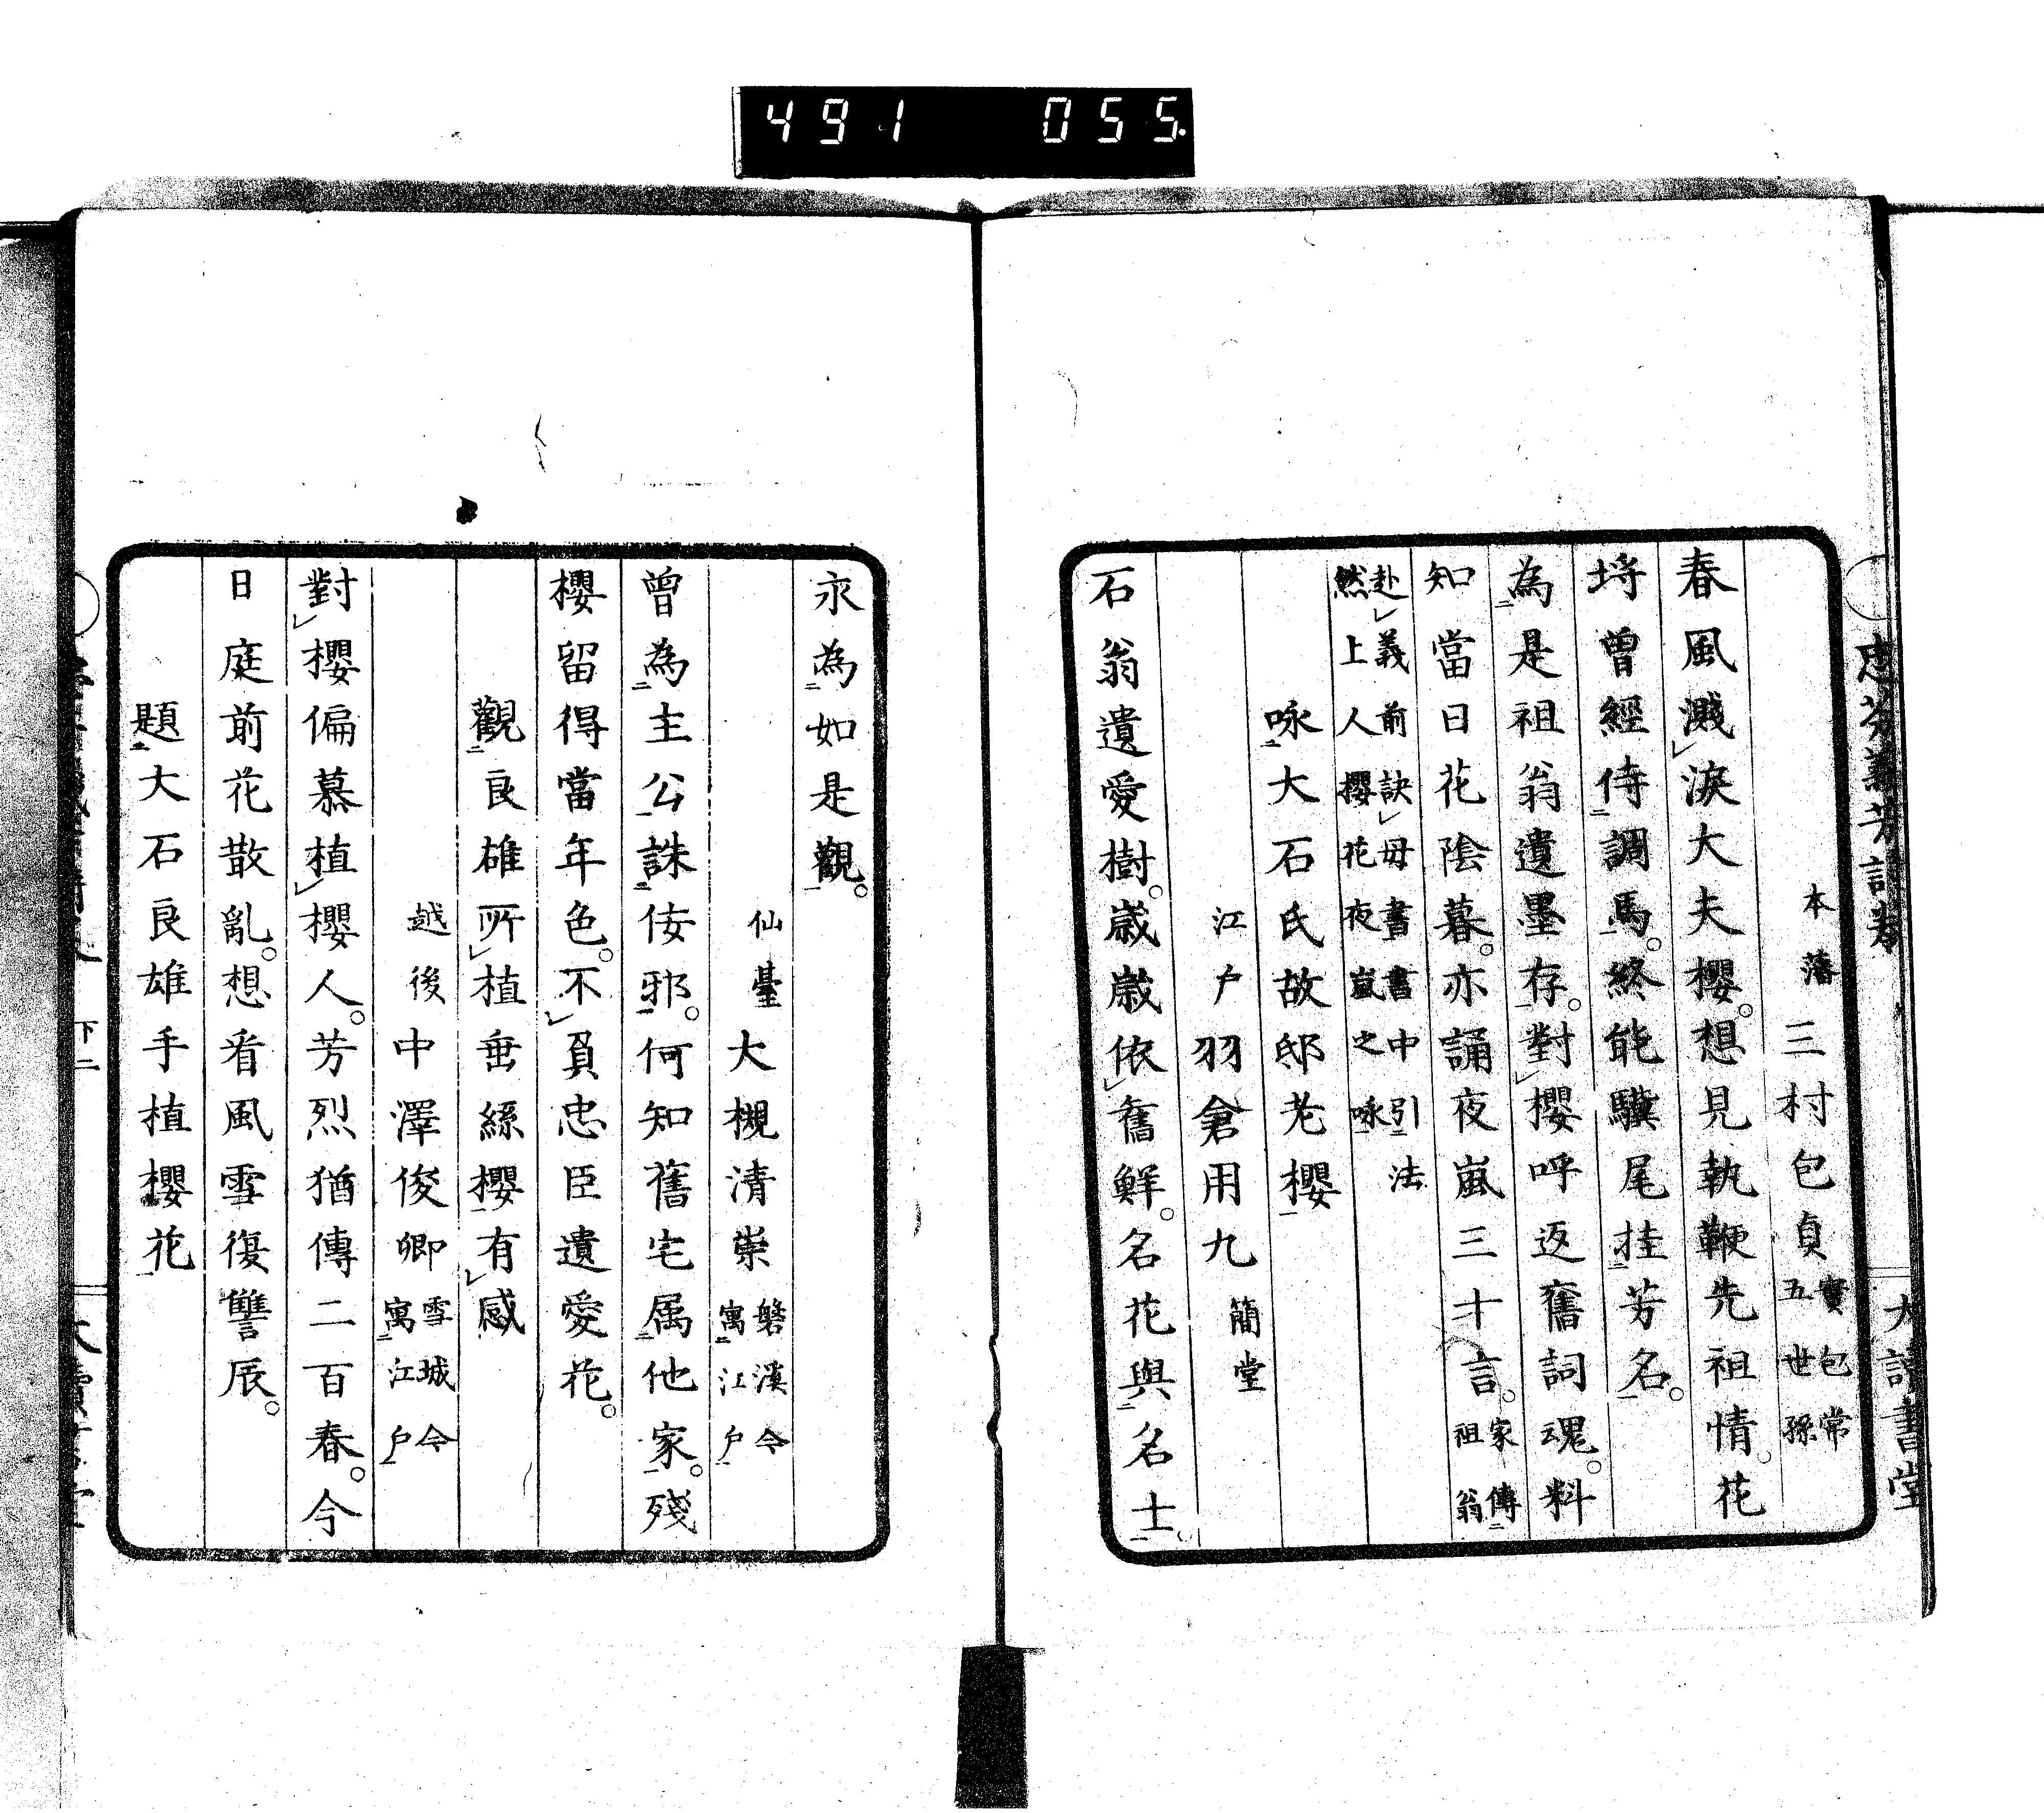 491 055
忠芬義芳詩巻
大讀書堂
本藩 三村包貞 實包常五世孫
春風濺淚大夫櫻。想見執鞭先祖情。花
埒曾經侍調馬。終能驥尾挂芳名。
為是祖翁遺墨存。對櫻呼返舊詞魂。料
知當日花陰暮。亦誦夜嵐三十言。家傳祖翁
赴義前訣母書書中引法
然上人櫻花夜嵐之咏
咏大石氏故邸老櫻
江戶 羽倉用九 簡堂
石翁遺愛樹。歲歲依舊鮮。名花與名士。
永為如是觀。
仙臺 大槻清崇 磐溪今寓江戶
曾為主公誅佞邪。何知舊宅属他家。殘
櫻留得當年色。不負忠臣遺愛花。
觀良雄所植垂絲櫻有感
越後 中澤俊卿 雪城今寓江戶
對櫻偏慕植櫻人。芳烈猶傳二百春。今
日庭前花散亂。想看風雪復讐辰。
題大石良雄手植櫻花
下二